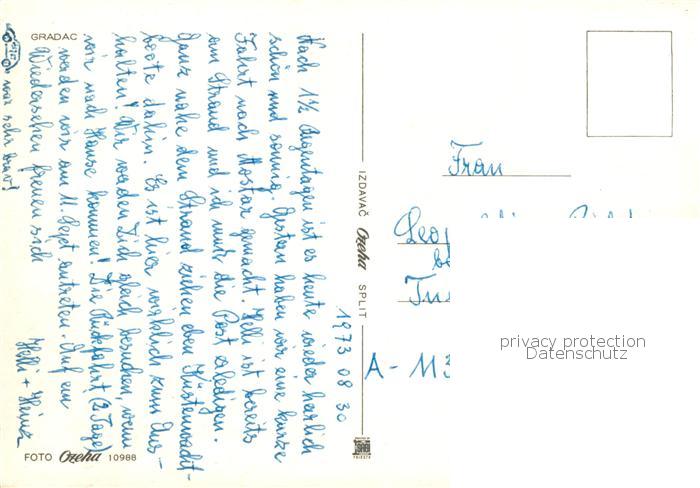 GRADAC
Nach 1½ Regentagen ist es heute wieder herrlich
schön und sonnig. Gestern haben wir eine kurze
Fahrt nach Mostar gemacht. Helli ist bereits
am Strand und ich muß die Post erledigen.
Ganz nahe dem Strand ziehen eben Küstenwacht-
boote dahin. Es ist hier wirklich zum Aus-
halten! Wir werden Dich gleich besuchen, wenn
wir nach Hause kommen! Die Rückfahrt (2 Tage)
werden wir am 11. Sept antreten. Auf ein
Wiedersehen freuen sich
Helli + Heinz
war sehr brav!
FOTO Ozeha 10988
IZDAVAČ Ozeha SPLIT
1973 08 30
Frau
A - 113
privacy protection
Datenschutz